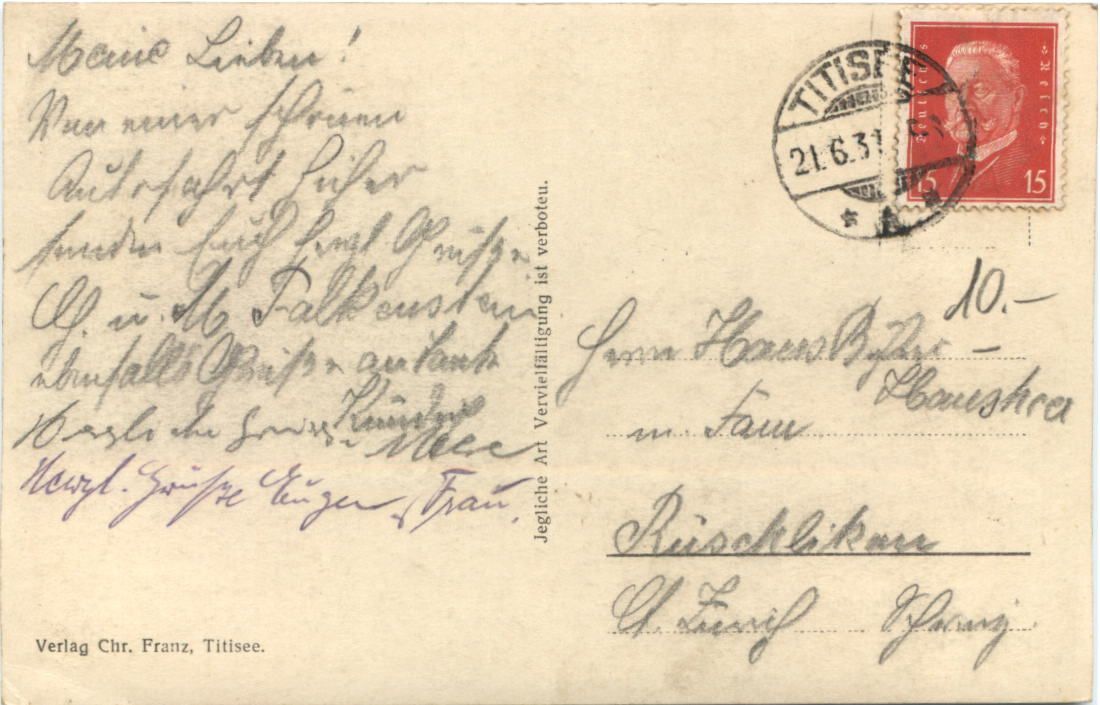 Meine Lieben!
Von einer schönen
Autofahrt hieher
senden Euch herzl Grüße
u. M. Falkenstein
ebenfalls Grüße an
Herzliche Grüsse
Herzl. Grüße Eugen u. Frau.
Verlag Chr. Franz, Titisee.
Jegliche Art Vervielfältigung ist verboten.
TITISEE
21.6.31
Deutsches Reich
15 15
10.–
Herrn Hans
m. Fam
Rüschlikon
Ct. Zürich Schweiz